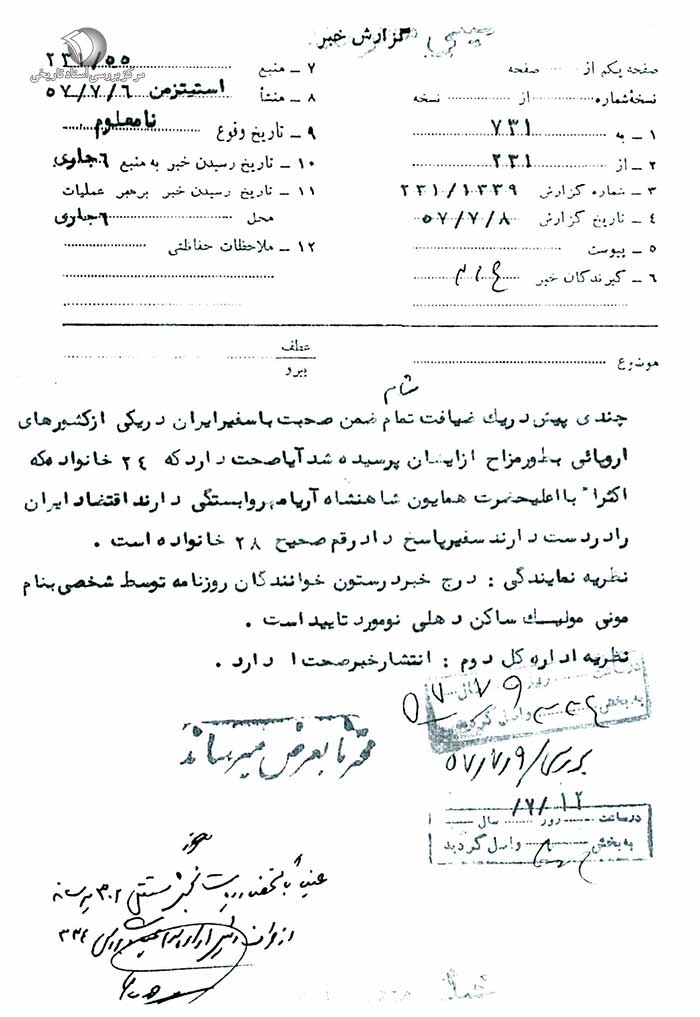 گزارش خبر
مرکز بررسی اسناد تاریخی
صفحه یکم از صفحه
نسخه شماره از نسخه
۱ ـ به ۷۳۱
۲ ـ از ۲۳۱
۳ ـ شماره گزارش ۲۳۱/۱۳۳۹
۴ ـ تاریخ گزارش ۵۷/۷/۸
۵ ـ پیوست
۶ ـ گیرندگان خبر
۷ ـ منبع ۲۳۱/۵۵
۸ ـ منشأ استیتزمن ۵۷/۷/۶
۹ ـ تاریخ وقوع نامعلوم
۱۰ ـ تاریخ رسیدن خبر به منبع ۶جاری
۱۱ ـ تاریخ رسیدن خبر برهبر عملیات
محل ۶جاری
۱۲ ـ ملاحظات حفاظتی
موضوع
عطف
پیرو
شام
چندی پیش دریک ضیافت تمام ضمن صحبت باسفیرایران دریکی ازکشورهای
اروپائی بطورمزاح ازایشان پرسیده شدآیاصحت داردکه ۲۴ خانواده‌که
اکثرا" بااعلیحضرت همایون شاهنشاه آریامهروابستگی دارند اقتضاد ایران
رادردست دارند سفیرپاسخ داد رقم صحیح ۲۸ خانواده است .
نظریه نمایندگی : درج خبردرستون خوانندگان روزنامه توسط شخصی بنام
مونی مولیک ساکن دهلی نومورد تاییداست .
نظریه اداره کل دوم : انتشارخبرصحت دارد .
درساعت روز سال
به بخش واصل گردید
۵۷/۷/۹
محترما بعرض میرساند
بررسی ۵۷/۷/۹
۷/۱۲
درساعت روز سال
به بخش واصل گردید